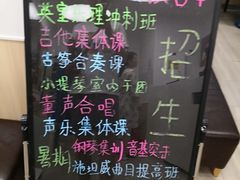 英皇乐理冲刺班
吉他集体课
古筝合奏课
小提琴室内乐团
童声合唱
声乐集体课
钢琴集训 音基实斗
暑期
施坦威曲目提高班
招生